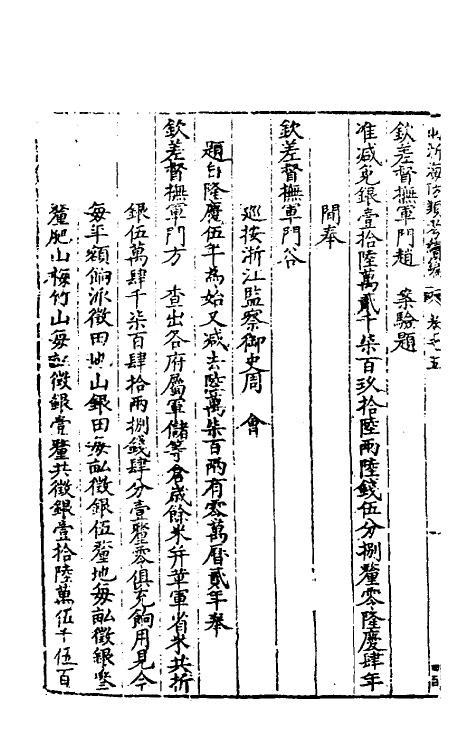 兩浙海防類考續編 卷之五
欽差督撫軍門趙 案驗題
准减免銀壹拾陸萬貳千柒百玖拾陸兩陸錢伍分捌釐零隆慶肆年
間奉
欽差督撫軍門谷
廵按浙江監察御史周 會
題自隆慶伍年為始又减去陸萬柒百兩有零萬曆貳年奉
欽差督撫軍門方 查出各府屬軍儲等倉歲餘米并革軍省米共折
銀伍萬肆千柒百肆拾兩捌錢肆分壹釐零俱充餉用見今
每年額餉派徵田地山銀田每畝徵銀伍釐地每畝徵銀叁
釐肥山梅竹山每畝徵銀壹釐共徵銀壹拾陸萬伍千伍百